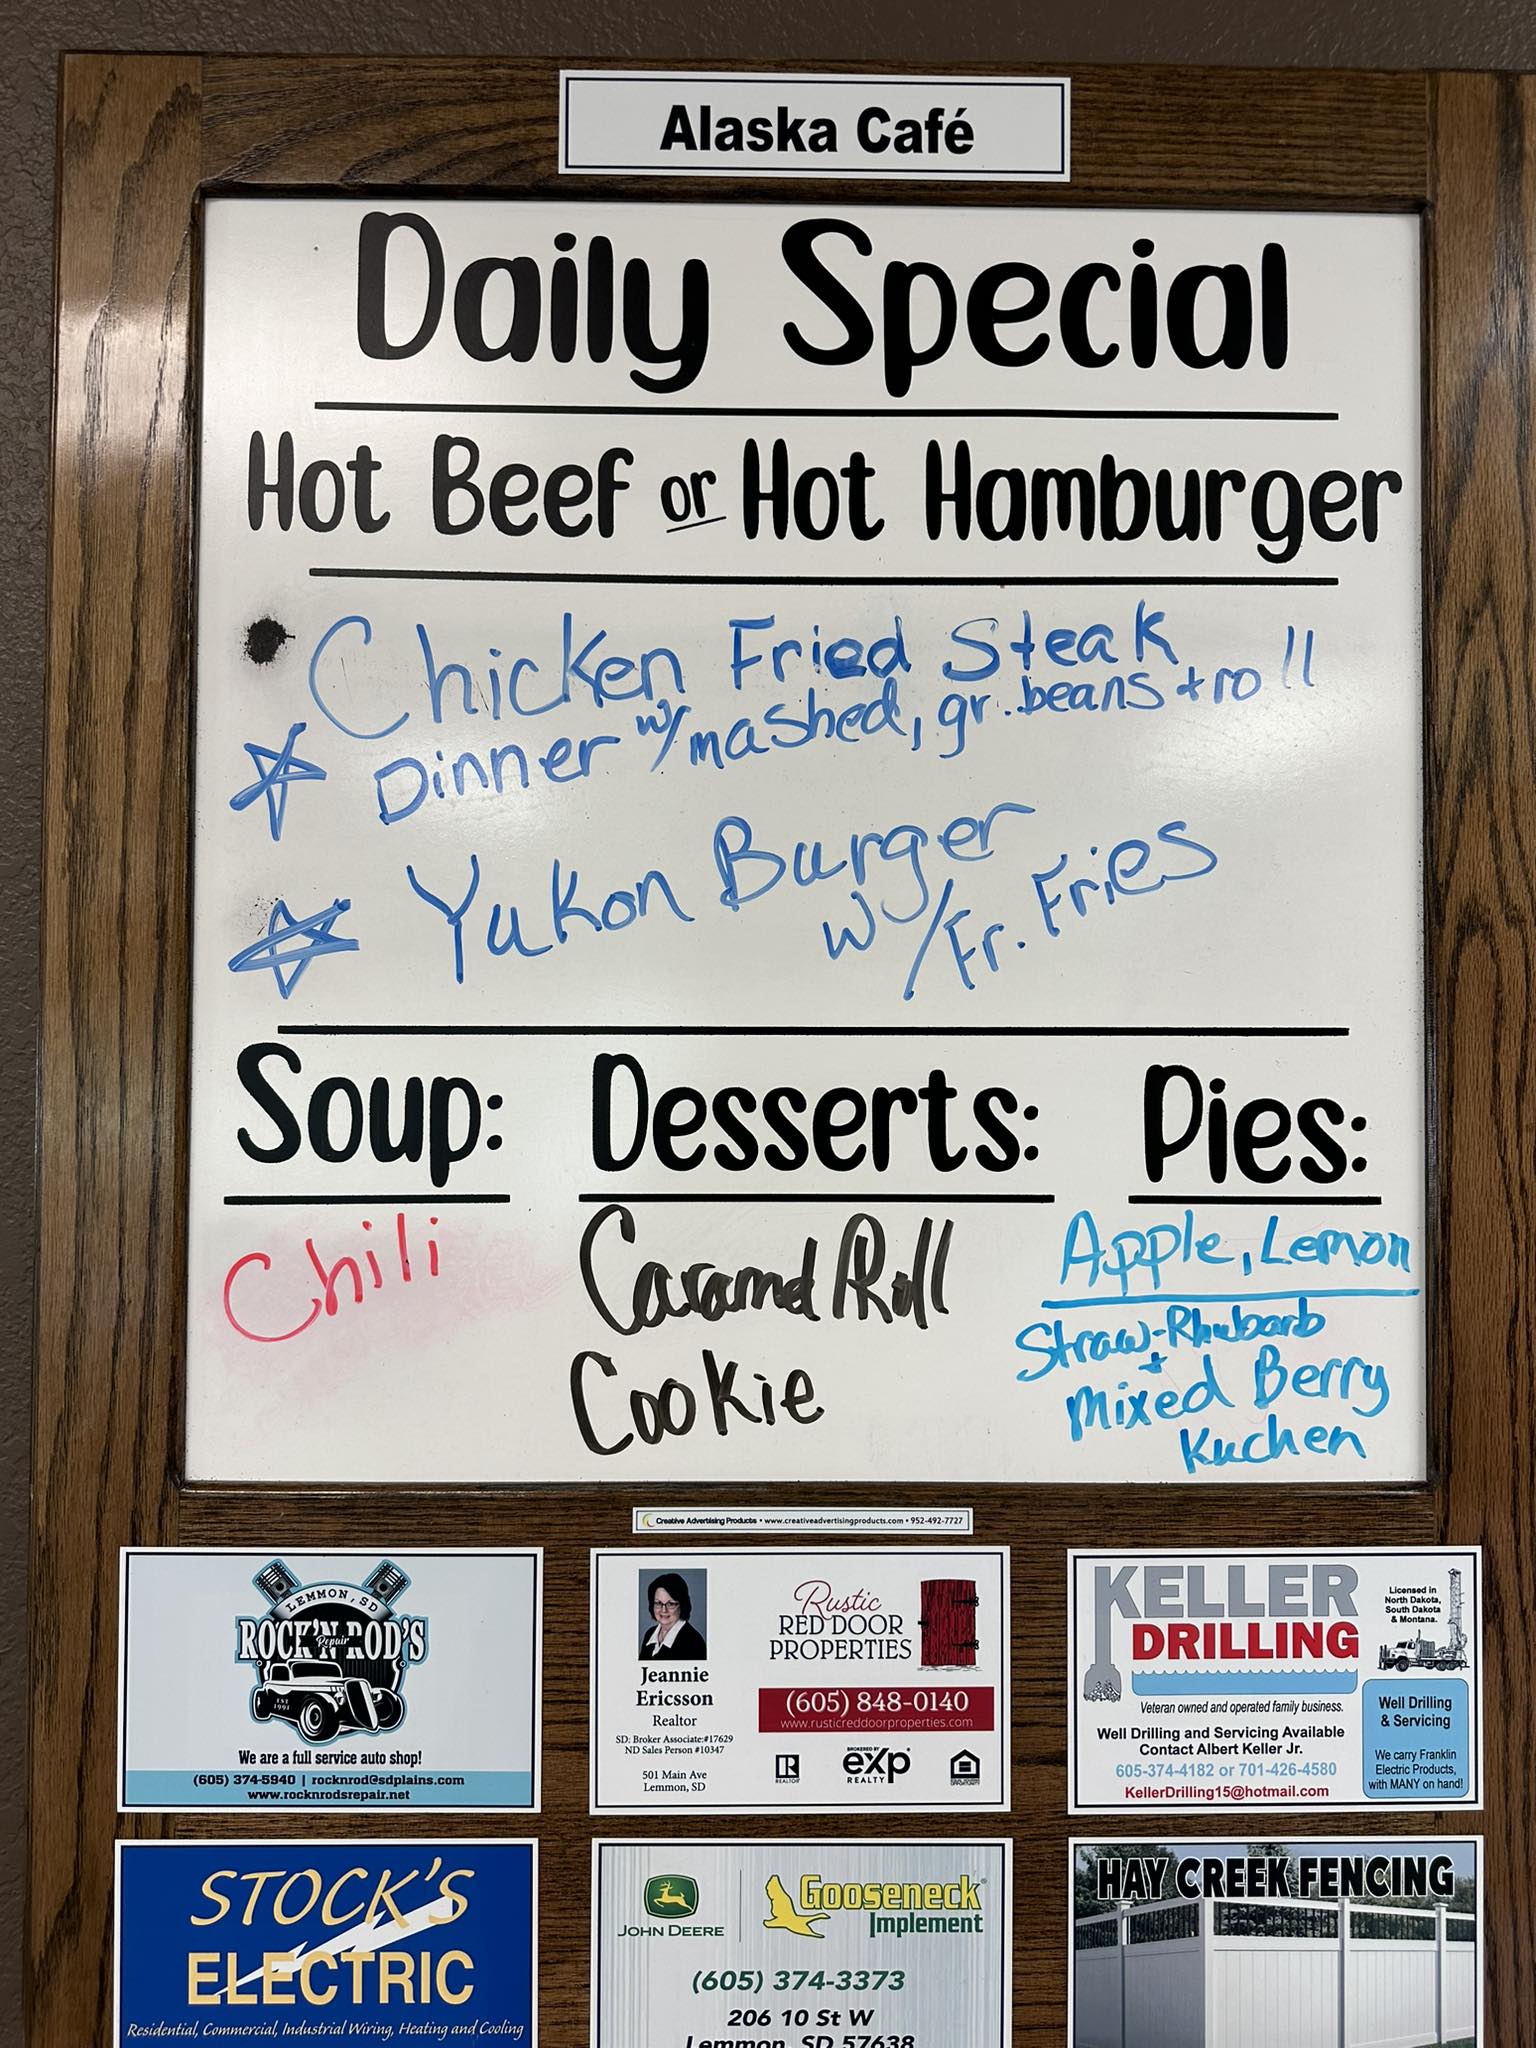 Alaska Café
Daily Special
Hot Beef or Hot Hamburger
Chicken Fried Steak
Dinner w/mashed, gr. beans + roll
Yukon Burger
w/Fr. Fries
Soup: Desserts: Pies:
Chili
Caramel Roll
Cookie
Apple, Lemon
Straw-Rhubarb
+
Mixed Berry
Kuchen
Creative Advertising Products • www.creativeadvertisingproducts.com • 952-492-7727
LEMMON, SD
ROCK'N ROD'S
Repair
EST
1991
We are a full service auto shop!
(605) 374-5940 | rocknrod@sdplains.com
www.rocknrodsrepair.net
Jeannie
Ericsson
Realtor
SD: Broker Associate:#17629
ND Sales Person #10347
501 Main Ave
Lemmon, SD
Rustic
RED DOOR
PROPERTIES
(605) 848-0140
www.rusticreddoorproperties.com
REALTOR
BROKERED BY
exp
REALTY
KELLER
DRILLING
Licensed in
North Dakota,
South Dakota
& Montana.
Veteran owned and operated family business.
Well Drilling and Servicing Available
Contact Albert Keller Jr.
605-374-4182 or 701-426-4580
KellerDrilling15@hotmail.com
Well Drilling
& Servicing
We carry Franklin
Electric Products,
with MANY on hand!
STOCK'S
ELECTRIC
Residential, Commercial, Industrial Wiring, Heating and Cooling
JOHN DEERE
Gooseneck
Implement
(605) 374-3373
206 10 St W
Lemmon, SD 57638
HAY CREEK FENCING